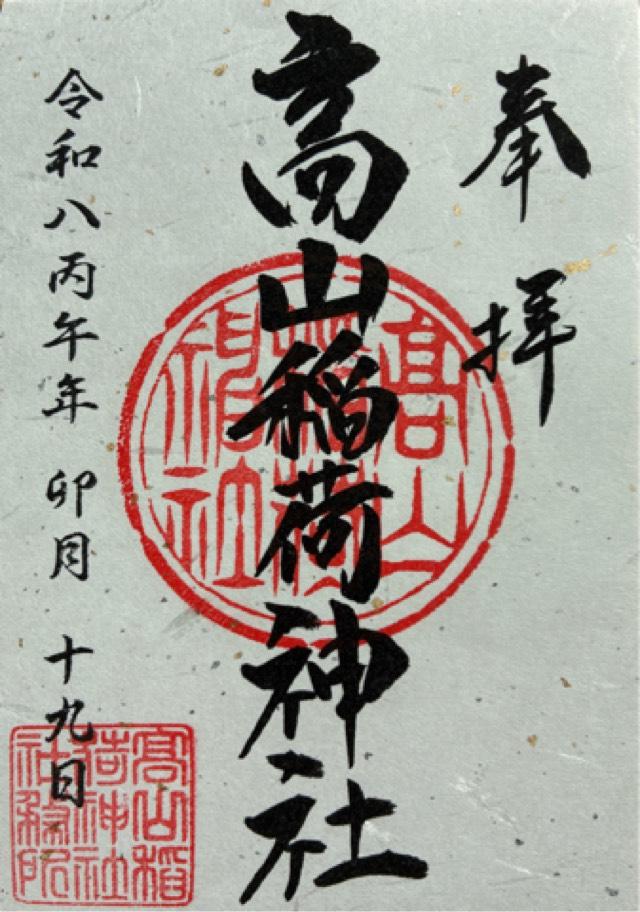 奉拝
高山稲荷神社
令和八丙午年 卯月 十九日
高山稲荷神社
高山稲荷神社社務所